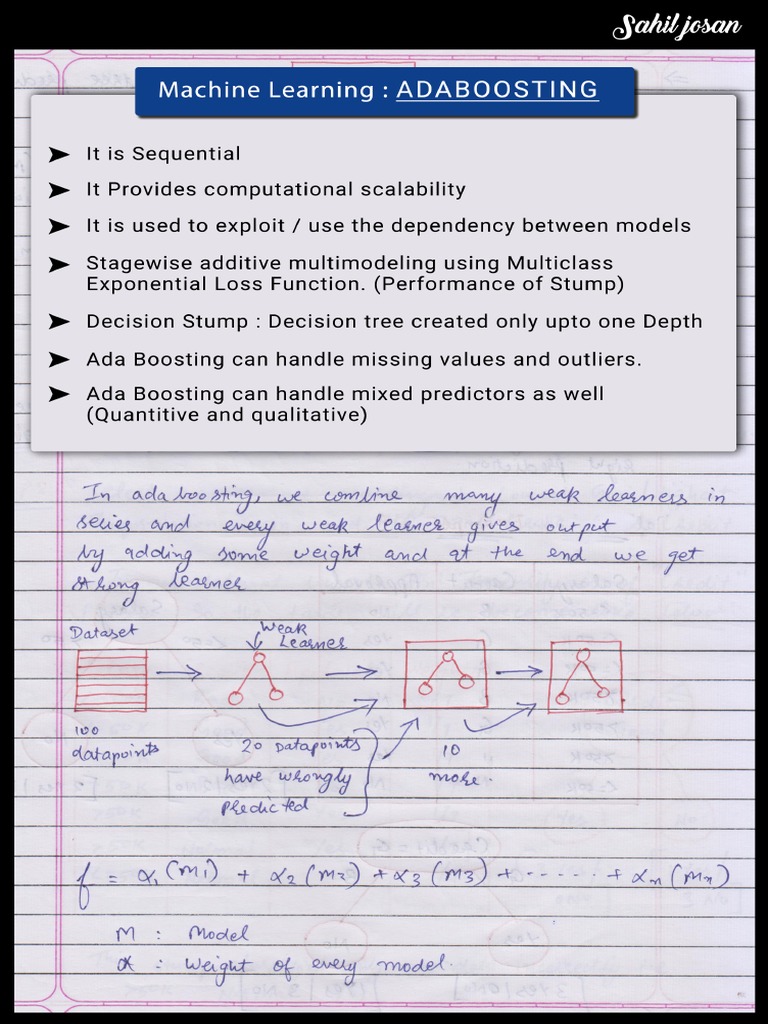 Sahil josan
Machine Learning : ADABOOSTING
➤ It is Sequential
➤ It Provides computational scalability
➤ It is used to exploit / use the dependency between models
➤ Stagewise additive multimodeling using Multiclass
Exponential Loss Function. (Performance of Stump)
➤ Decision Stump : Decision tree created only upto one Depth
➤ Ada Boosting can handle missing values and outliers.
➤ Ada Boosting can handle mixed predictors as well
(Quantitive and qualitative)
In ada boosting, we combine many weak learners in
series and every weak learner gives output
by adding some weight and at the end we get
strong learner
Dataset
Weak
Learner
100
datapoints
20 datapoints
have wrongly
predicted
10
more.
f = α1(M1) + α2(M2) + α3(M3) + ...... + αn(Mn)
M : Model
α : Weight of every model.